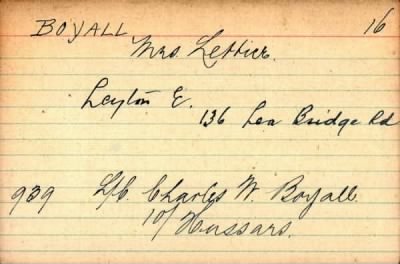 BOYALL 16
Mrs. Lettice.
Leyton E.
136 Lea Bridge Rd
939 L/C. Charles W. Boyall.
10/Hussars.